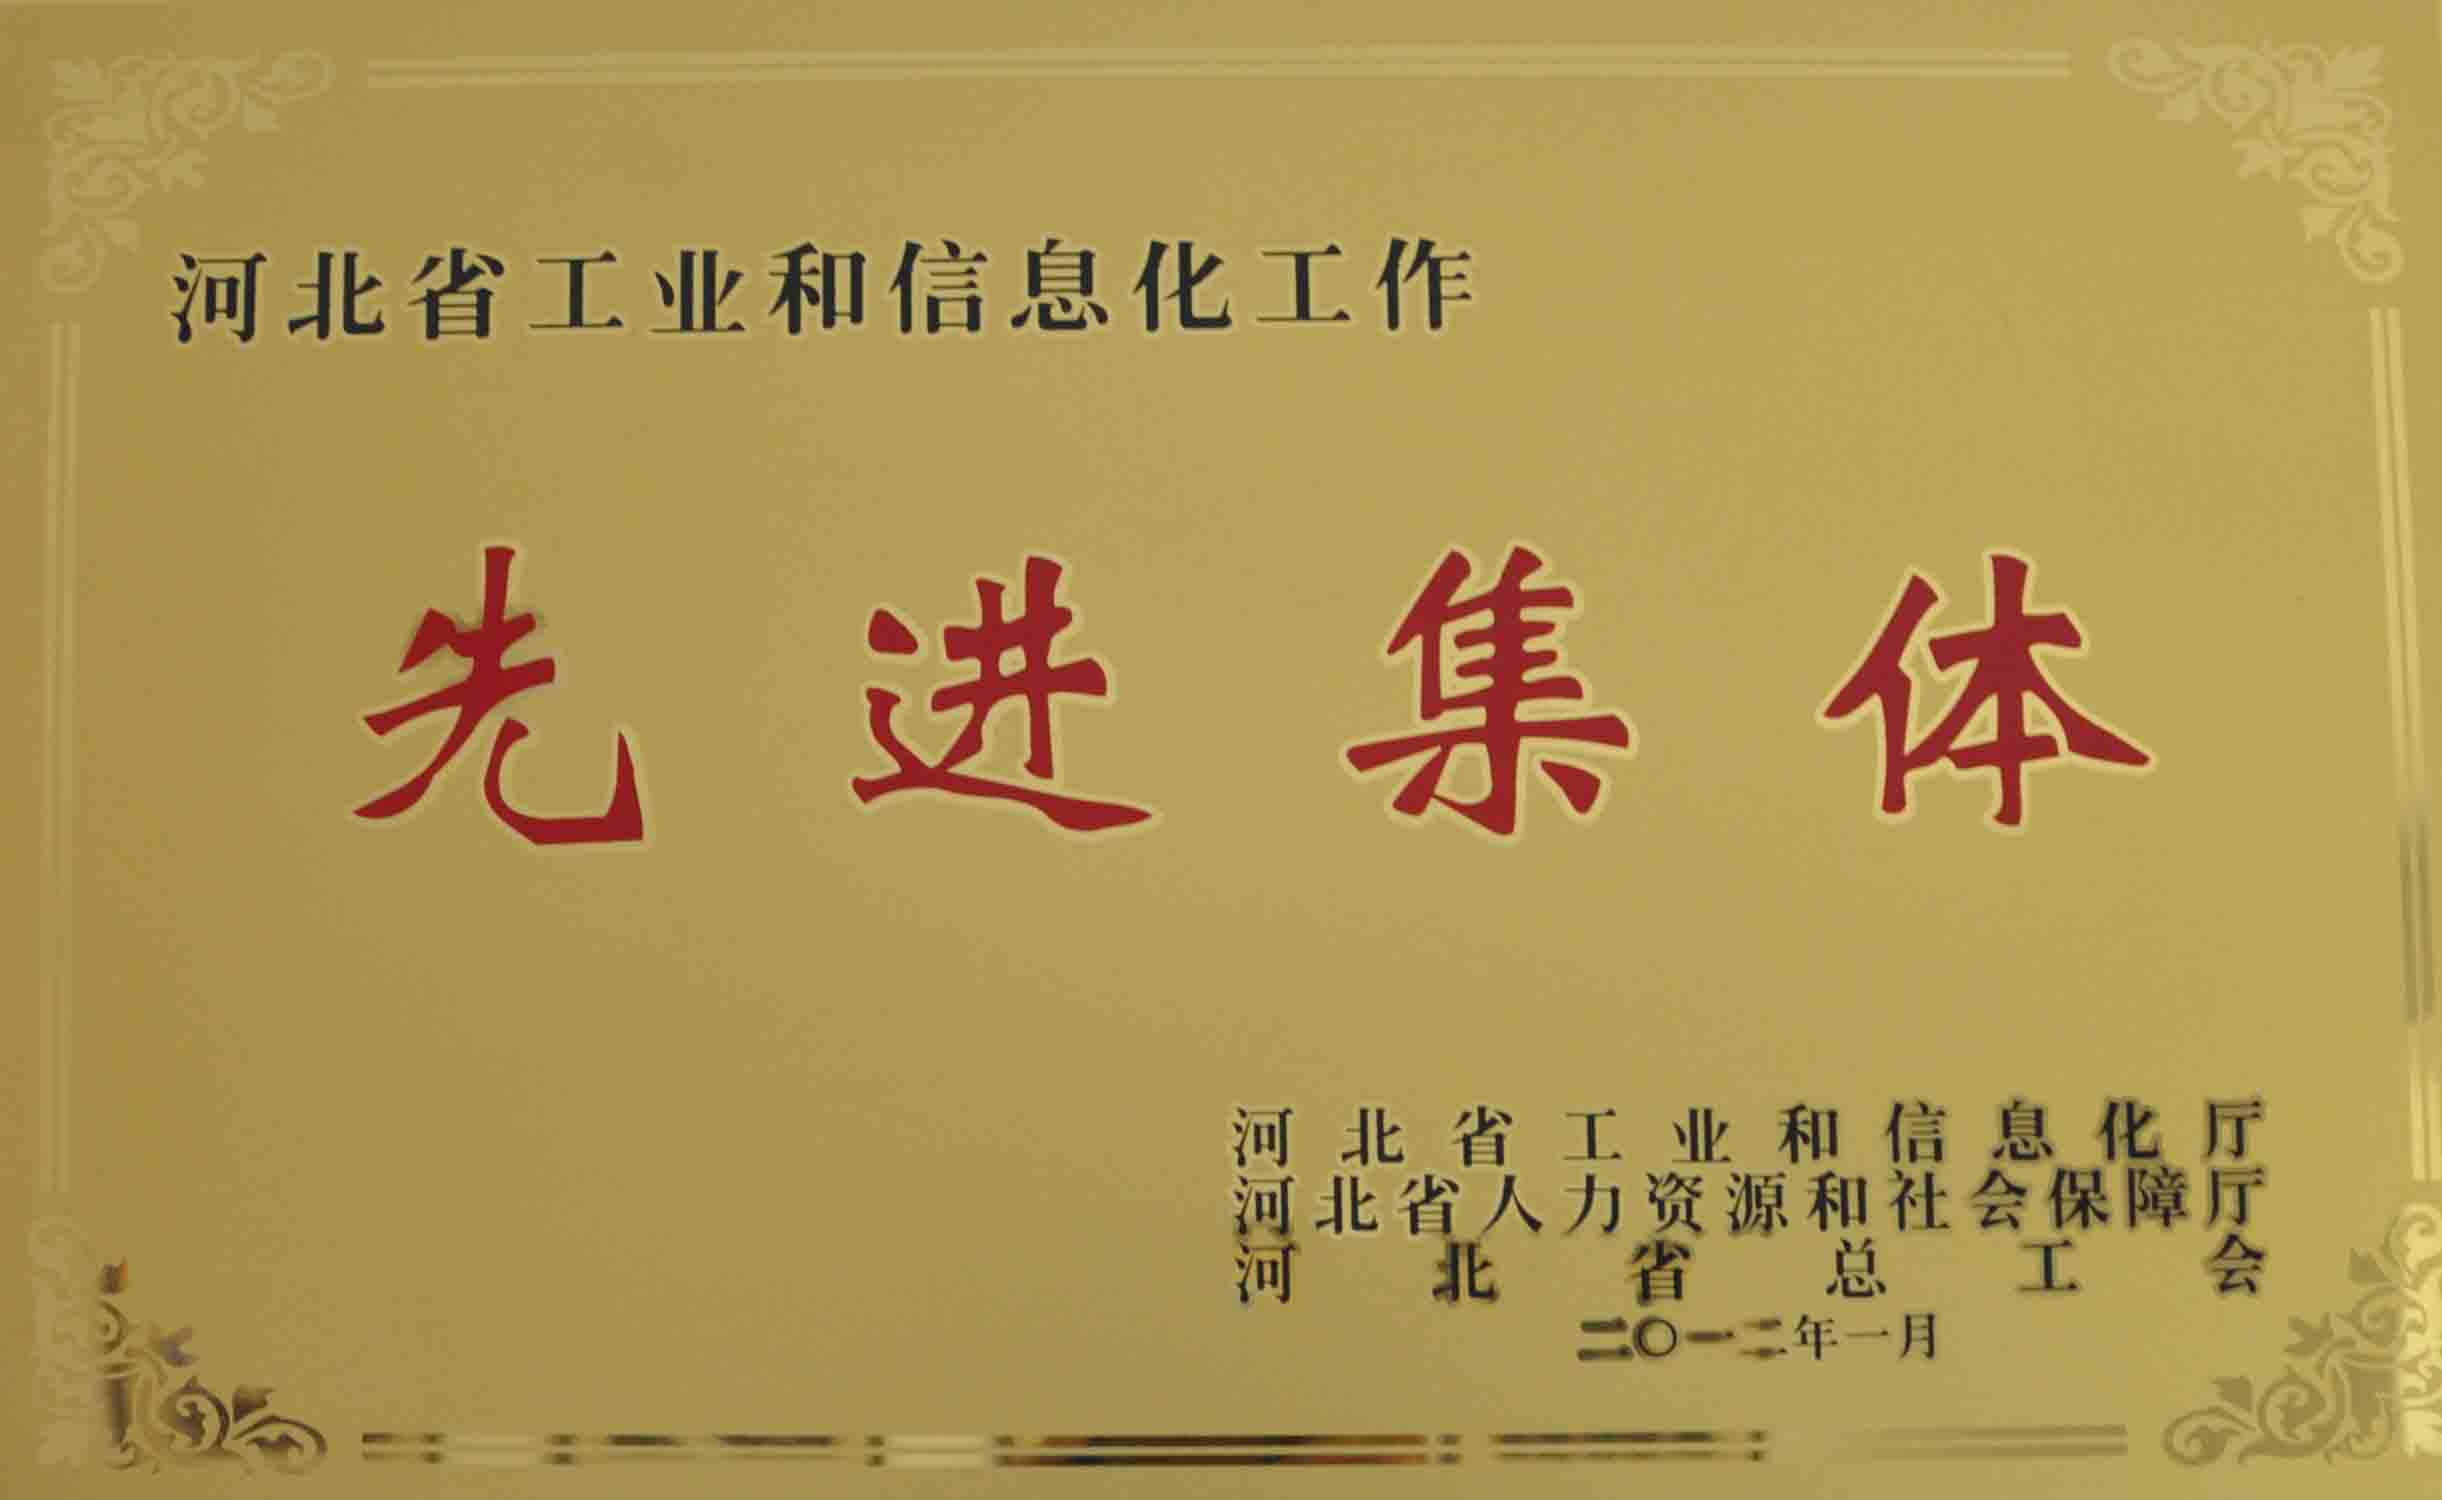 河北省工业和信息化工作
先进集体
河北省工业和信息化厅
河北省人力资源和社会保障厅
河北省总工会
二〇一二年一月